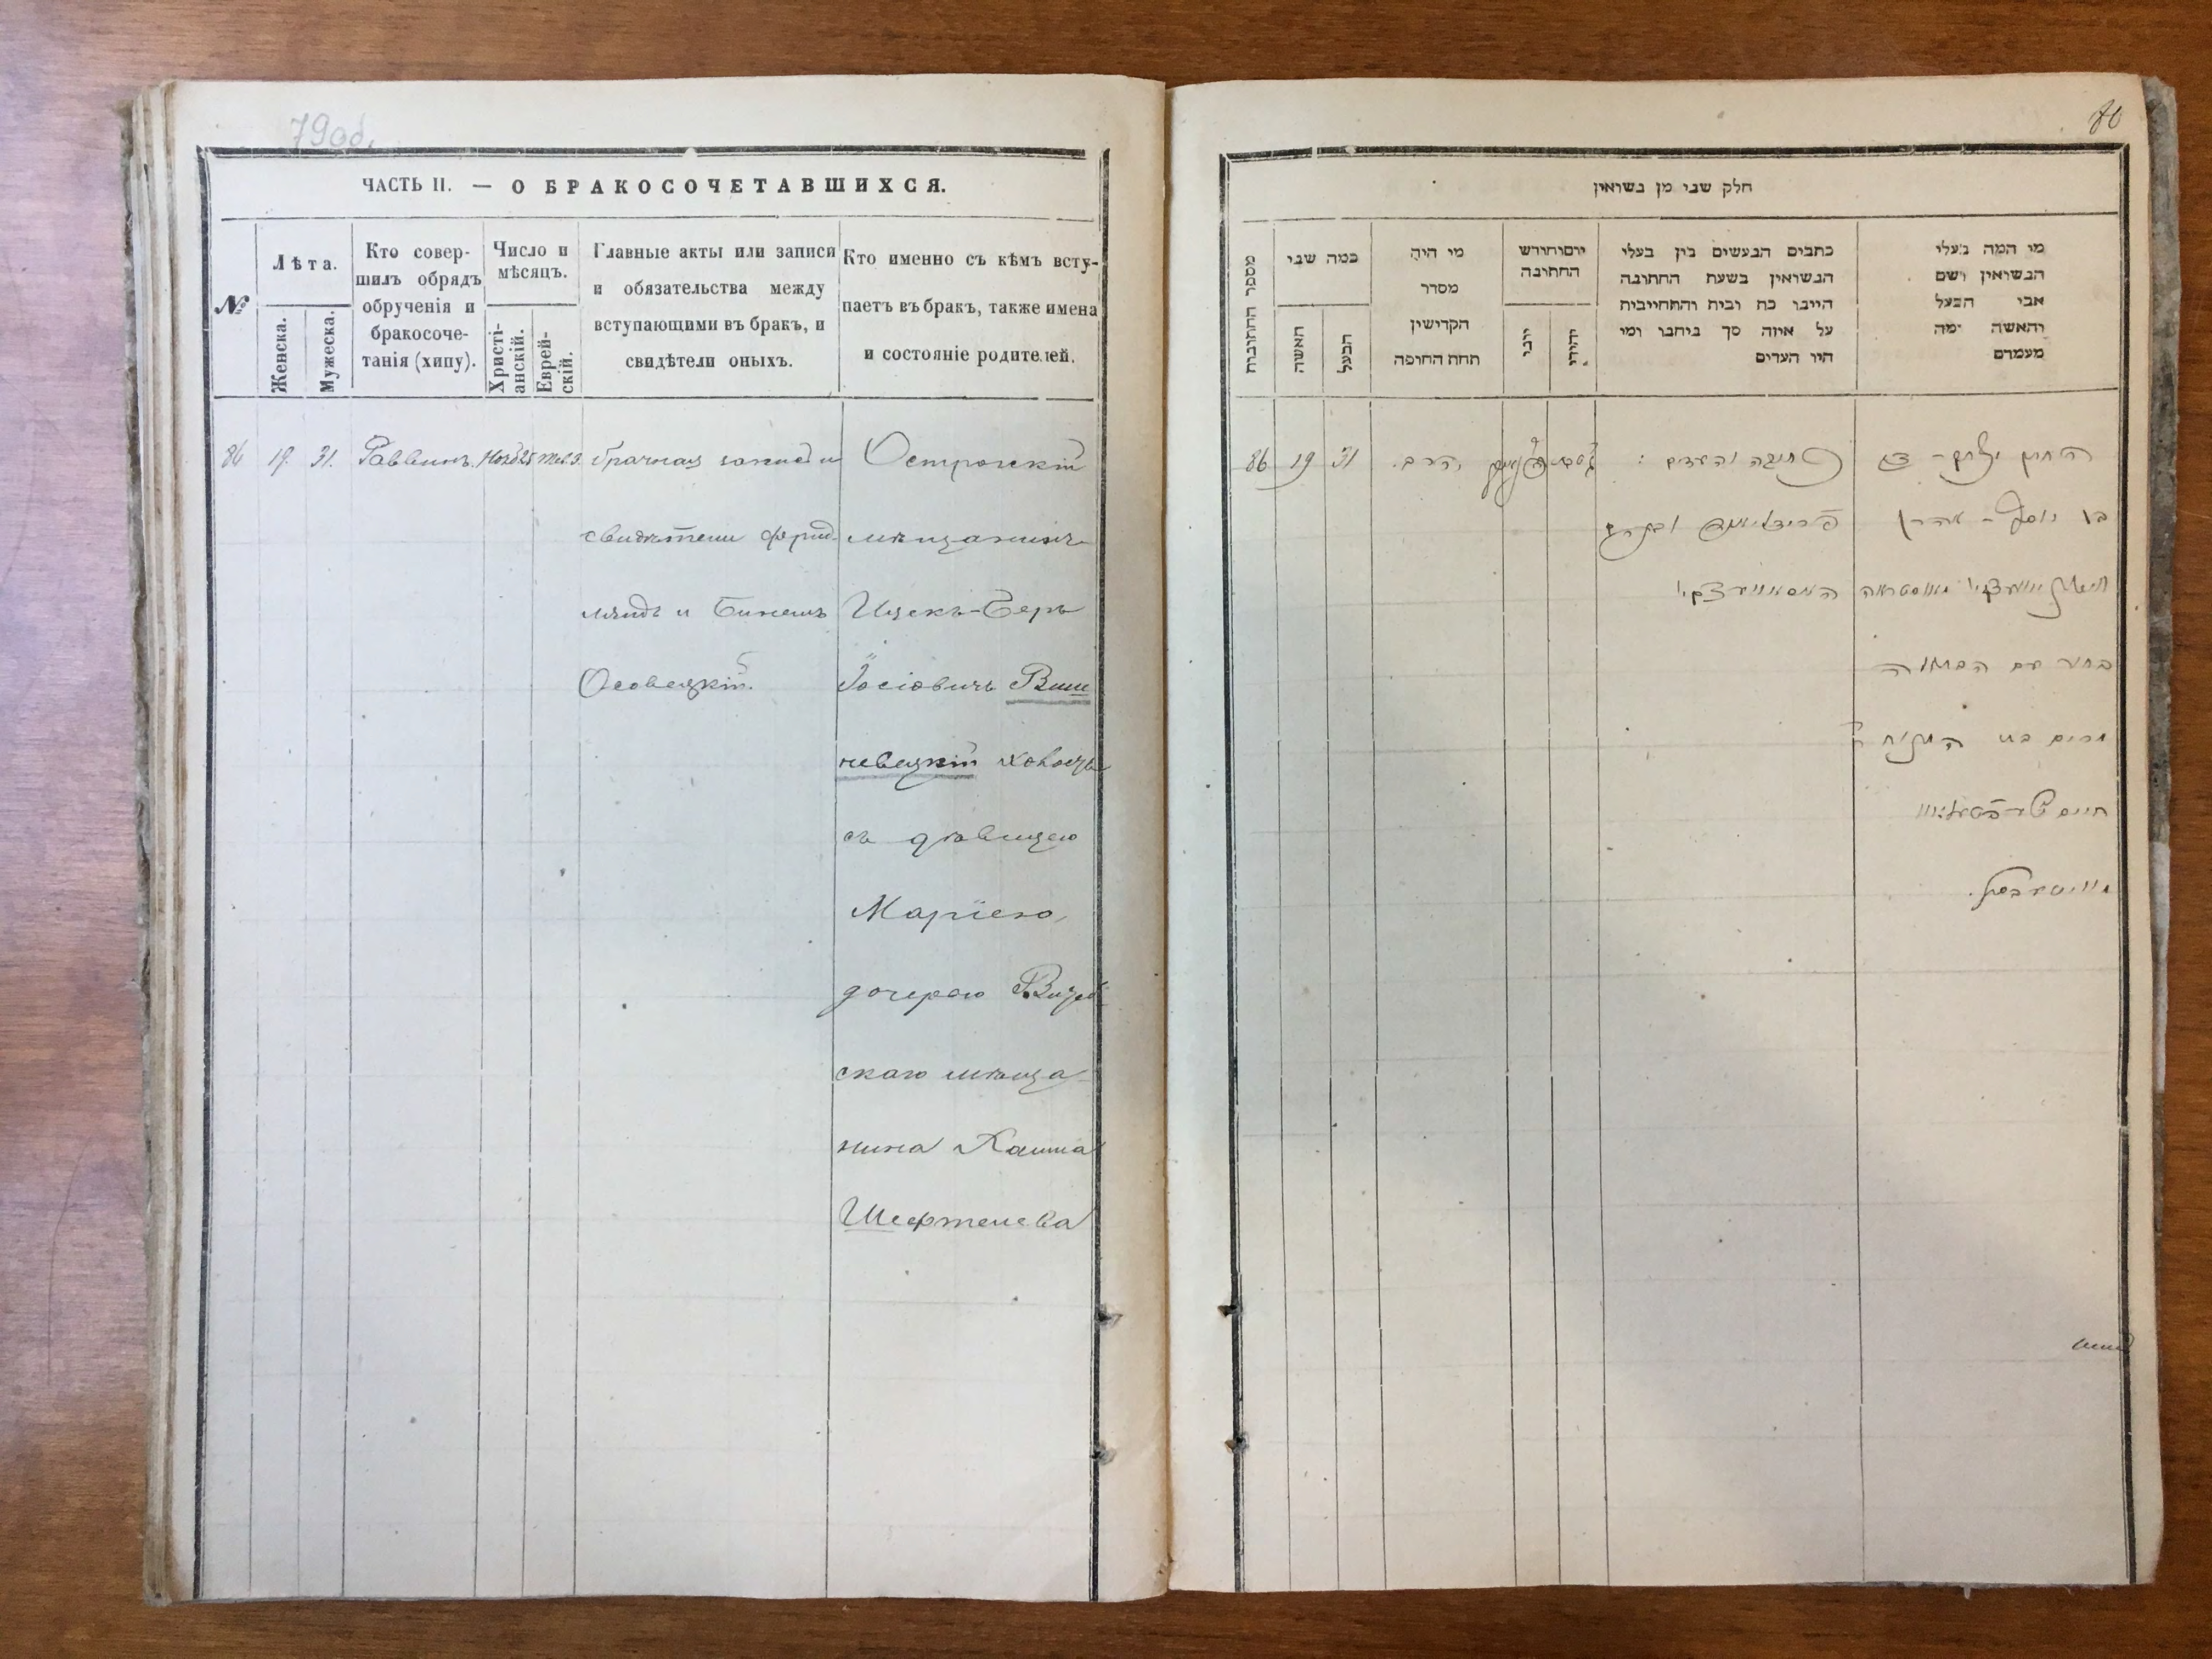 79 об.
ЧАСТЬ II. — О БРАКОСОЧЕТАВШИХСЯ.
№
Лѣта.
Женска.
Мужеска.
Кто совер-
шилъ обрядъ
обрученія и
бракосоче-
танія (хипу).
Число и
мѣсяцъ.
Христі-
анскій.
Еврей-
скій.
Главные акты или записи
и обязательства между
вступающими въ бракъ, и
свидѣтели оныхъ.
Кто именно съ кѣмъ всту-
паетъ въ бракъ, также имена
и состояніе родителей.
86 19. 31. Раввинъ.
брачная запись и
свидѣтели Фрид-
лянд и Бинешъ
Осовецкій.
Острожскій
мѣщанинъ
Ицекъ-Беръ
Іосіовичъ Виш
невецкій холостъ
съ дѣвицею
Маріею,
дочерью Витеб
скаго мѣща
нина Хаима
Шефтелева
80
חלק שני מן נשואין
מספר החתונות
כמה שני
האשה
הבעל
מי היה
מסדר
הקדישין
תחת החופה
יום וחודש
החתונה
יוני
יהודי
כתבים הנעשים בין בעלי
הנשואין בשעת החתונה
היינו כת ובית והתחייבית
על איזה סך ביחבו ומי
היו העדים
מי המה בעלי
הנשואין ושם
אבי הבעל
והאשה ומה
מעמדם
86 19 31 הרב.
כתובה והעדים :
בן יוסף - אהרן
בחור עם הבתולה
מרים בת
חיים